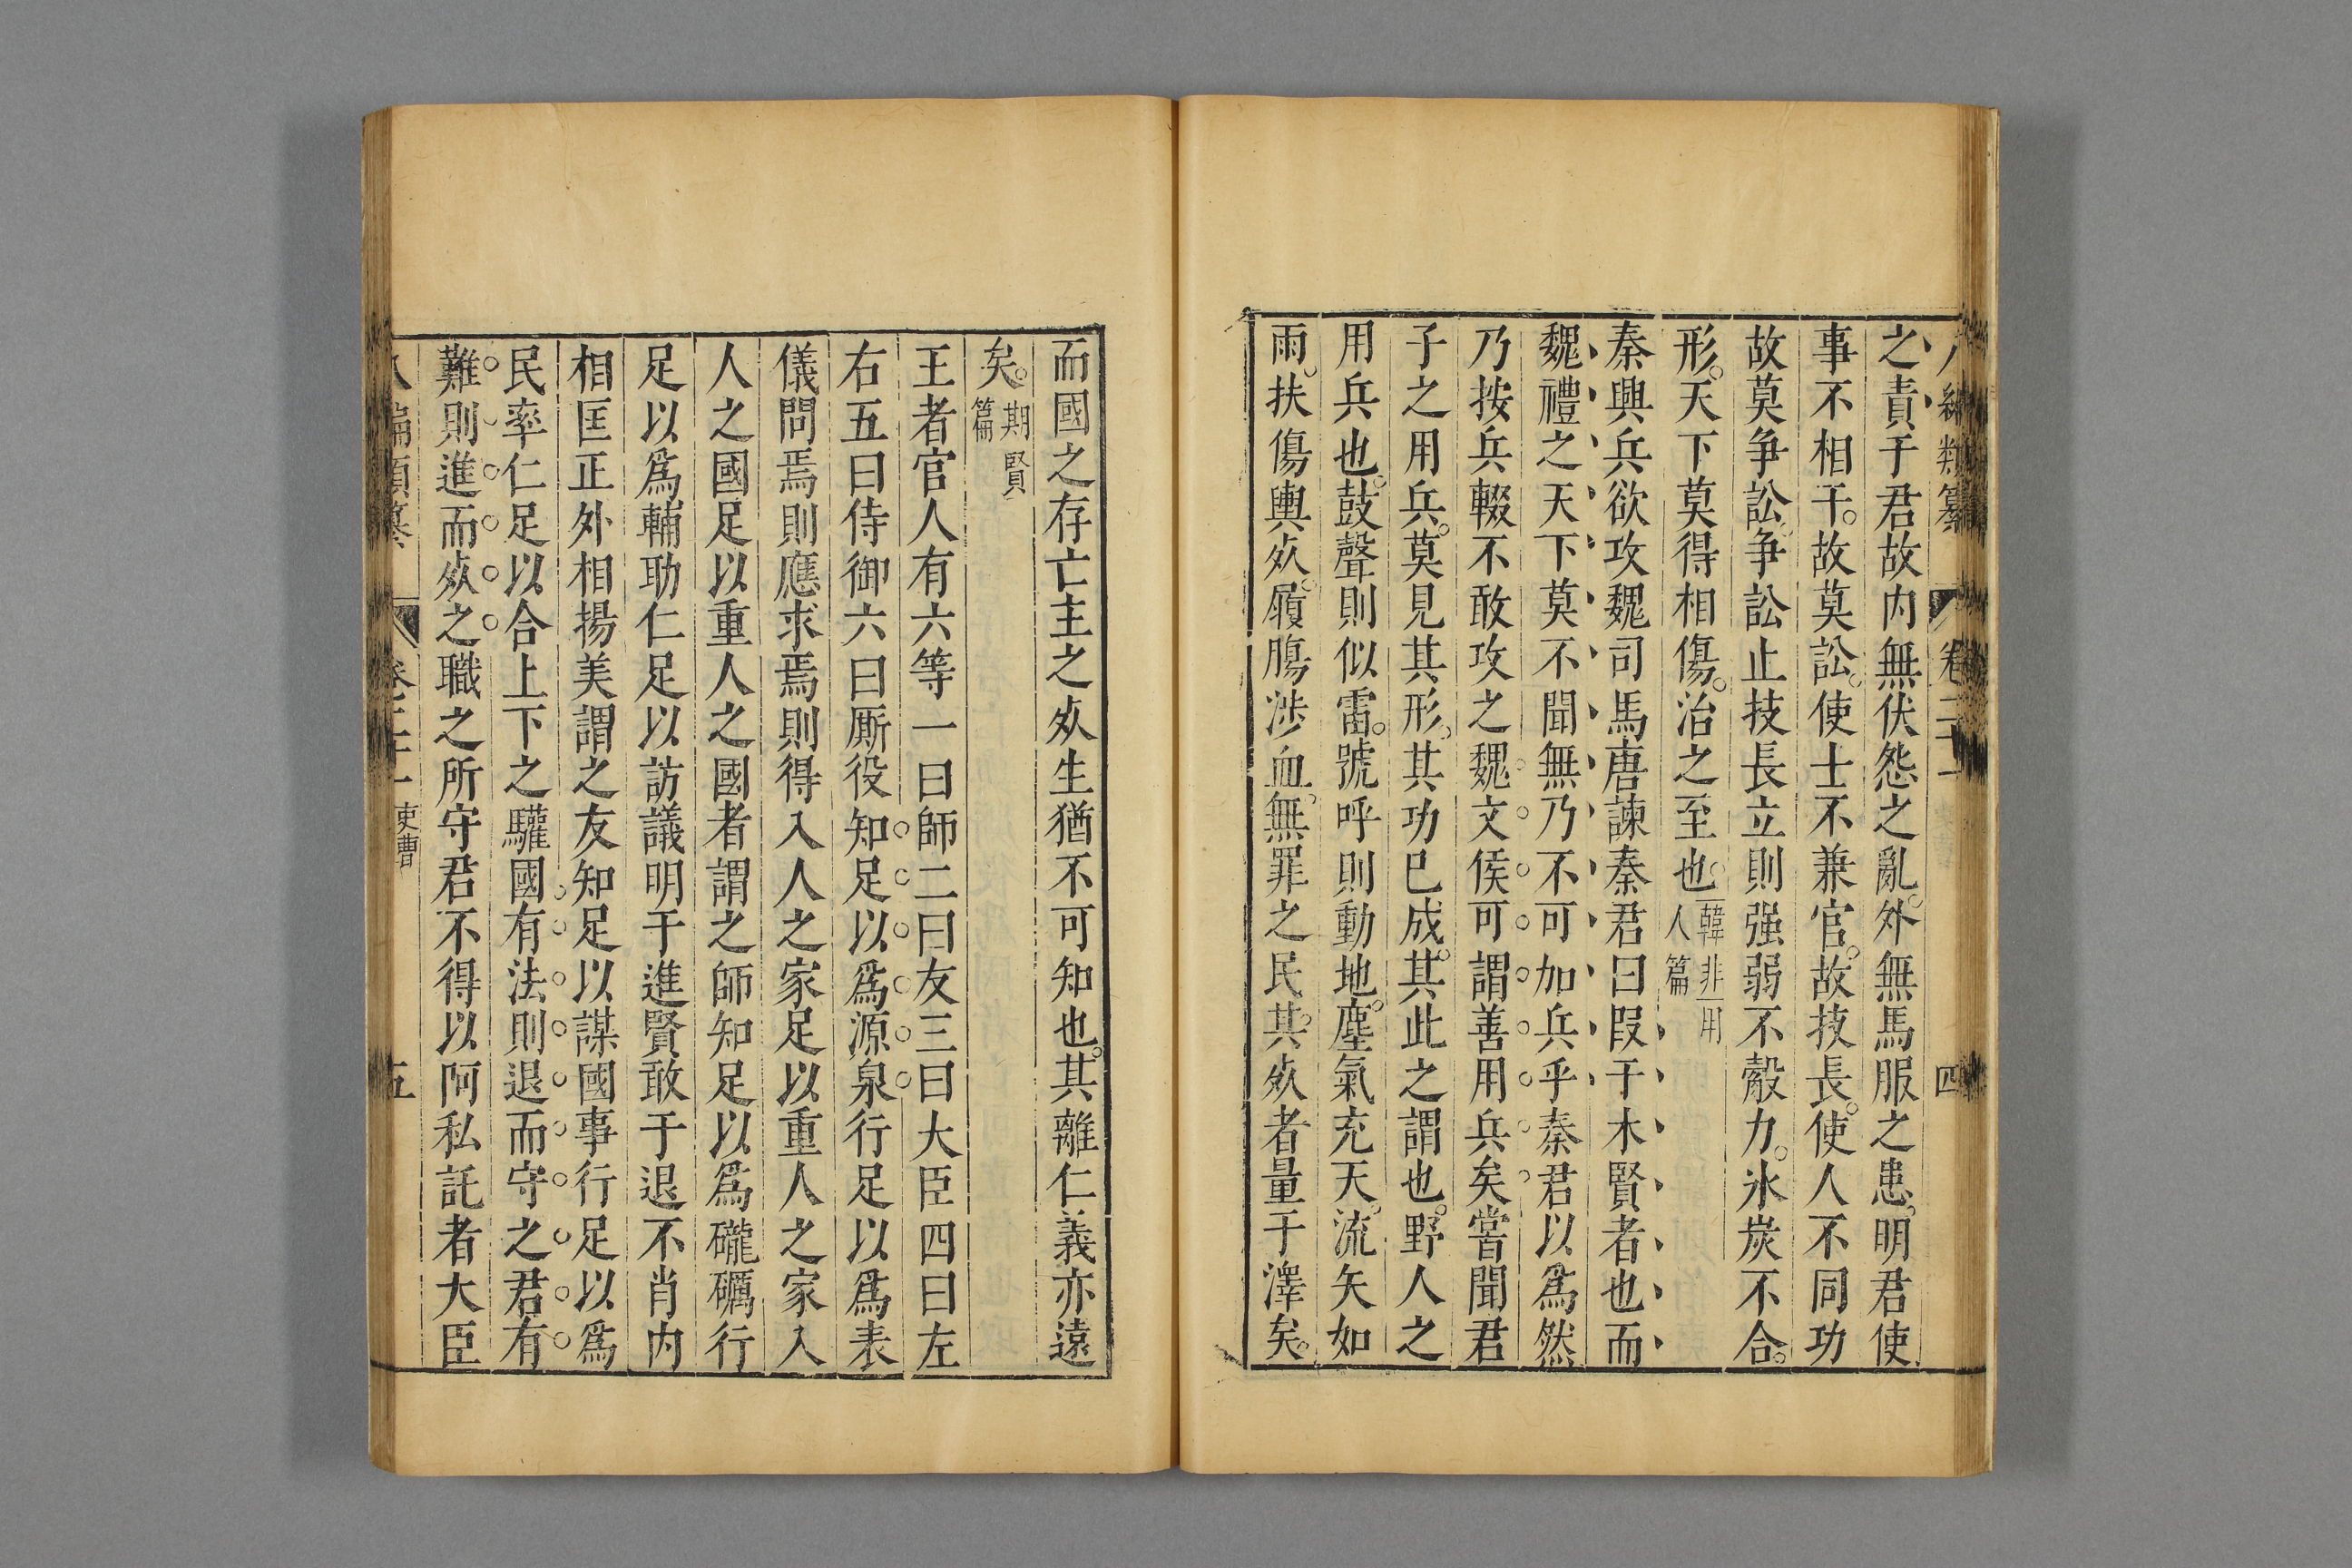 八編類纂 卷二十一 四
之責于君故内無伏怨之亂。外無馬服之患。明君使
事不相干。故莫訟。使士不兼官。故技長。使人不同功
故莫争訟。争訟止技長立則强弱不觳力。氷炭不合。
形。天下莫得相傷。治之至也。韓非用人篇
秦興兵欲攻魏司馬唐諫秦君曰段干木賢者也而
魏禮之天下莫不聞無乃不可加兵乎秦君以爲然
乃按兵輟不敢攻之魏文侯可謂善用兵矣嘗聞君
子之用兵。莫見其形。其功已成。其此之謂也。野人之
用兵也。鼓聲則似雷。號呼則動地。塵氣充天。流矢如
雨。扶傷輿㱙。履膓涉血。無罪之民。其㱙者量于澤矣。
而國之存亡主之㱙生猶不可知也。其離仁義亦遠
矣。期賢篇
王者官人有六等一曰師二曰友三曰大臣四曰左
右五曰侍御六曰厮役知足以爲源泉行足以爲表
儀問焉則應求焉則得入人之家足以重人之家入
人之國足以重人之國者謂之師知足以爲礲礪行
足以爲輔助仁足以訪議明于進賢敢于退不肖内
相匡正外相揚美謂之友知足以謀國事行足以爲
民率仁足以合上下之驩國有法則退而守之君有
難則進而㱙之職之所守君不得以阿私託者大臣
八編類纂 卷二十一 吏曹 五